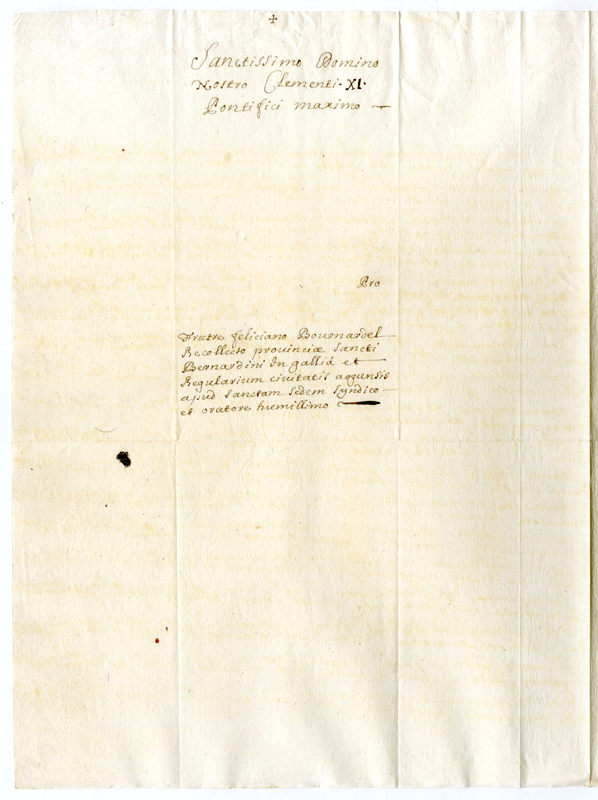 ✠
Sanctissimo Domino
Nostro Clementi · XI ·
Pontifici maximo
Pro
Fratre feliciano Bournardel
Recollecto provinciæ Sancti
Bernardini In galliâ et
Regularium civitatis agensis
apud Sanctam Sedem Syndico
et oratore humillimo